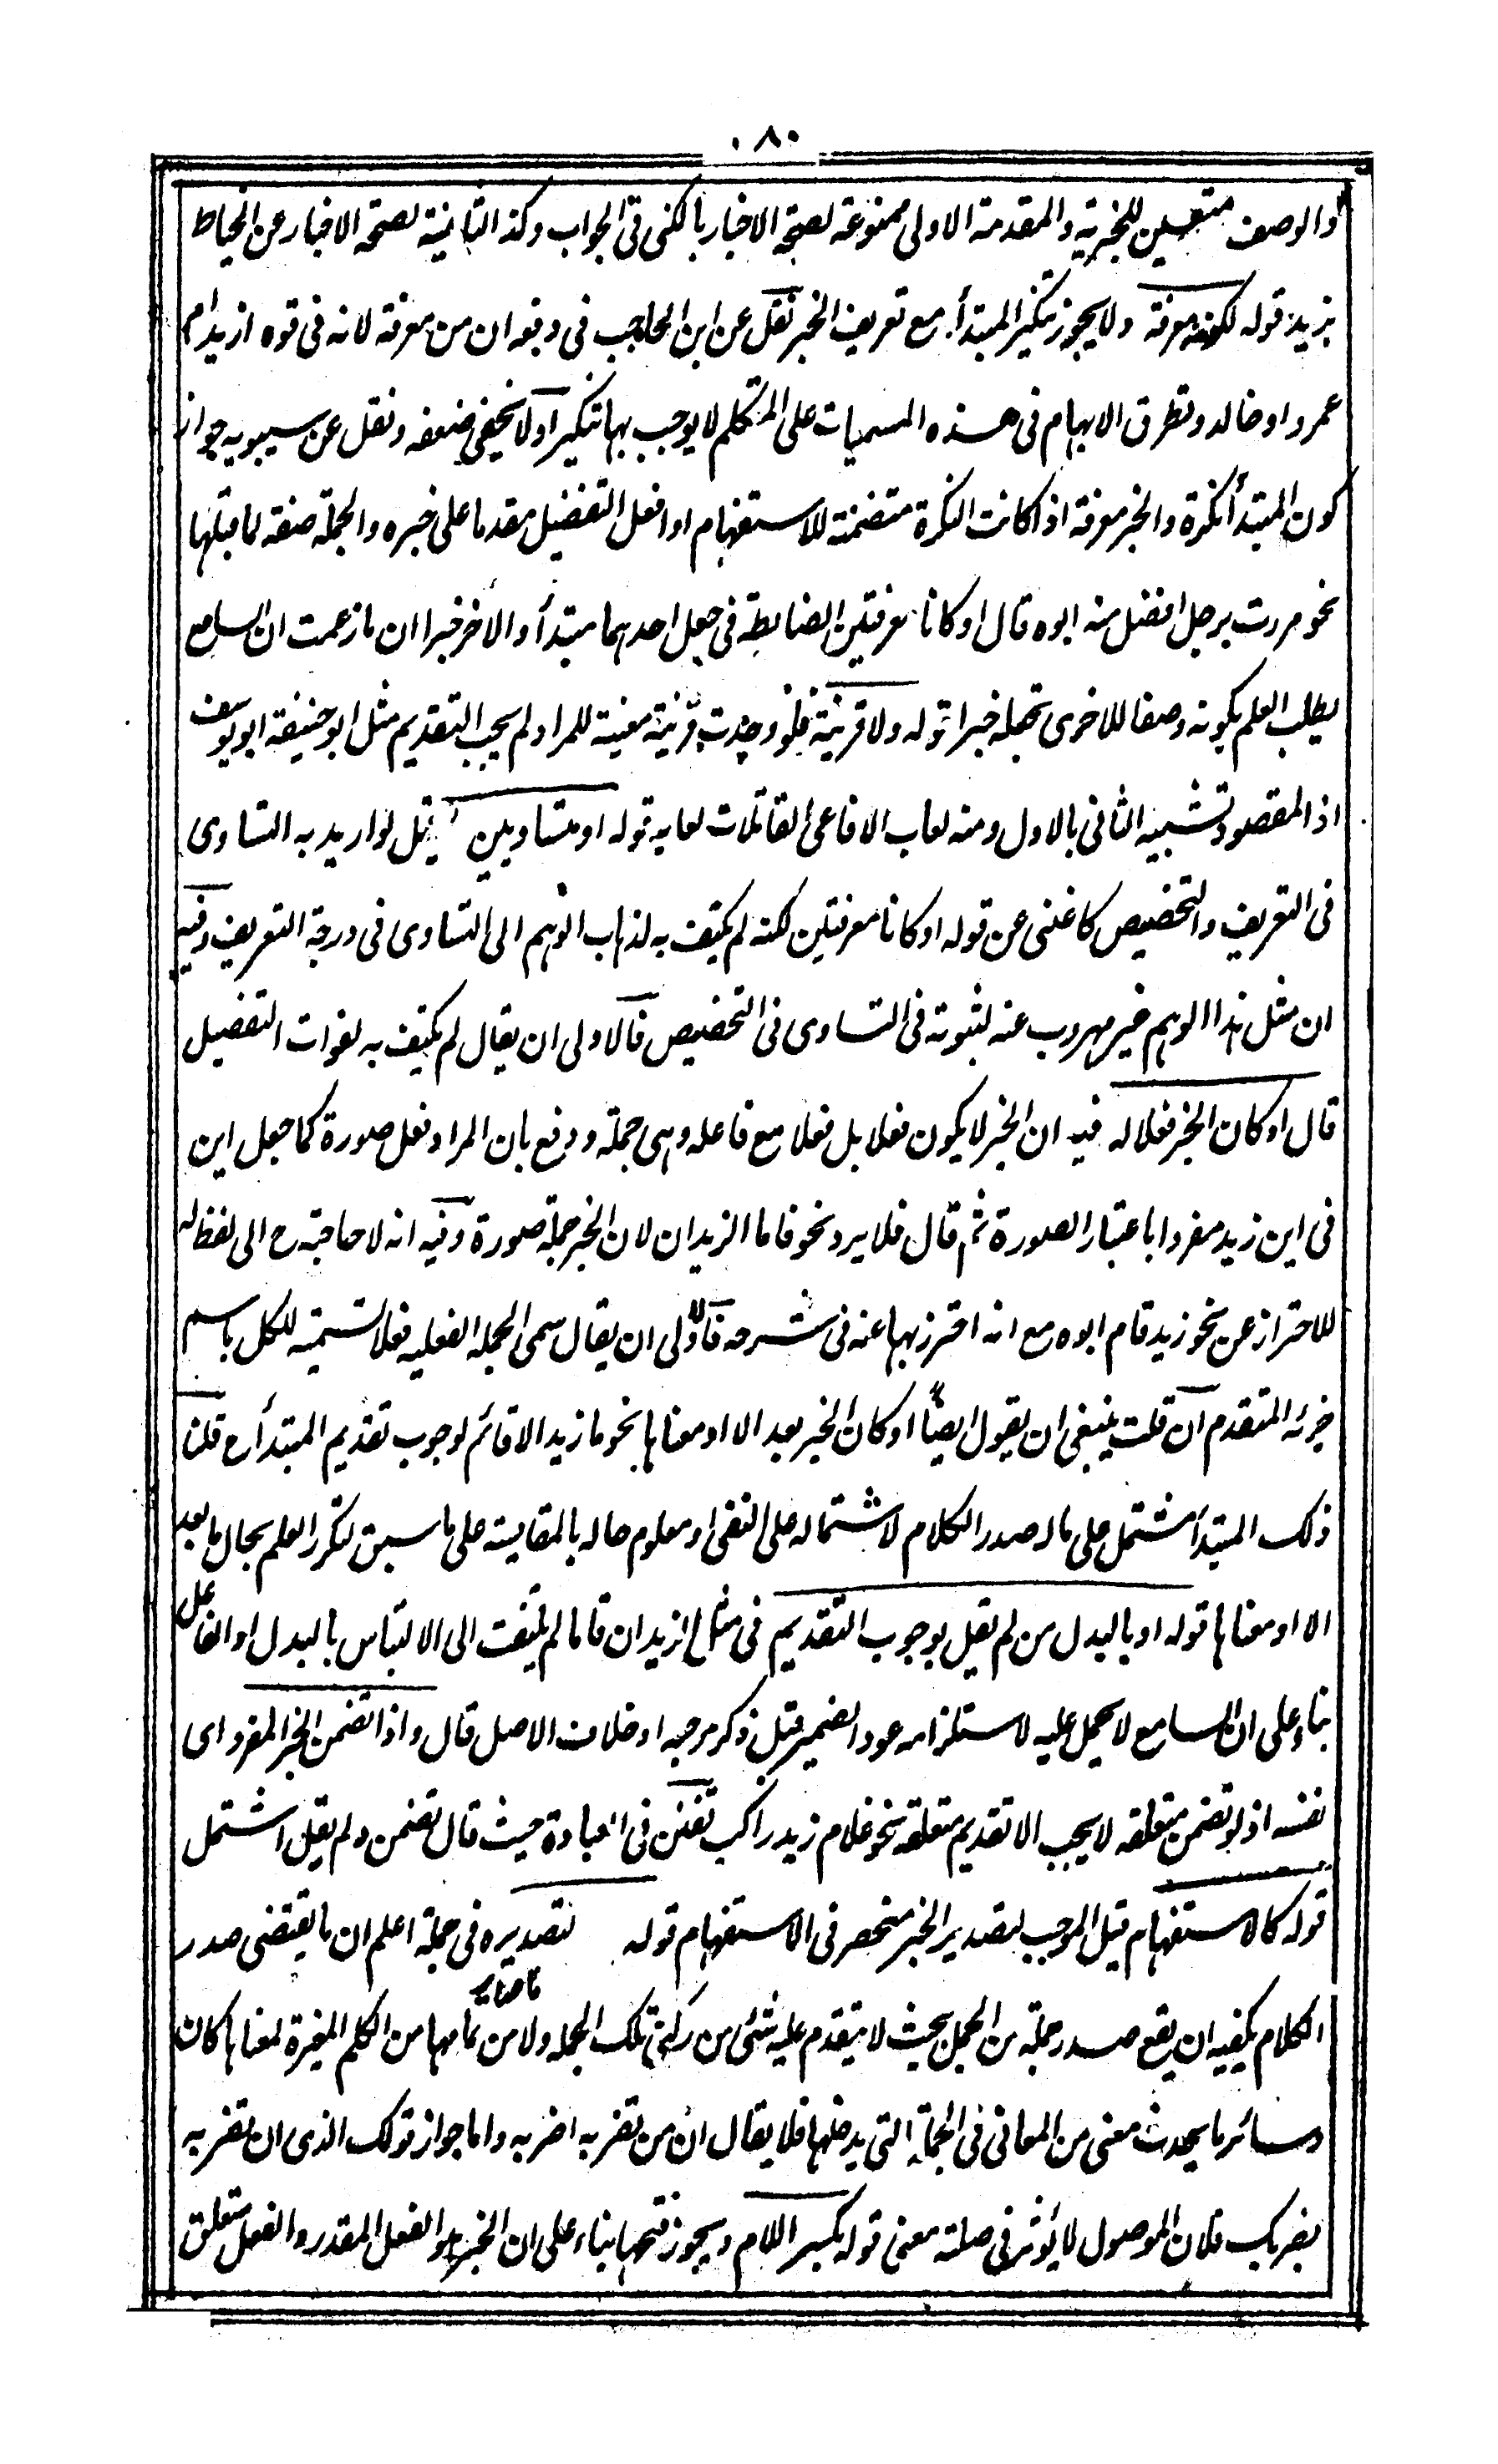 ٨٠
والوصف متعين للخبرية والمقدمة الاولى ممنوعة لصحة الاخبار بالكنى فى الجواب وكذا الثانية لصحة الاخبار عن الخياط
بزيد قوله لكونه معرفة ولا يجوز تنكير المبتدأ مع تعريف الخبر نقل عن ابن الحاجب فى دفعه ان من معرفة لانه فى قوة ازيد ام
عمرو او خالد وتطرق الابهام فى هذه المسميات على المتكلم لا يوجب بها تنكيرا ولا يخفى ضعفه ونقل عن سيبويه جواز
كون المبتدأ نكرة والخبر معرفة اذا كانت النكرة متضمنة للاستفهام او افعل التفضيل مقدما على خبره والجملة صفة لما قبلها
نحو مررت برجل افضل منه ابوه قال او كانا معرفتين الضابطة فى جعل احدهما مبتدأ والآخر خبرا ان ما زعمت ان السامع
يطلب العلم بكونه وصفا للاخرى تجعله خبرا قوله ولا قرينة فلو وجدت قرينة معينة للمراد لم يجب التقديم مثل ابو حنيفة ابو يوسف
اذ المقصود تشبيه الثانى بالاول ومنه لعاب الافاعى القاتلات لعابه قوله او متساويين قيل لو اريد به التساوى
فى التعريف والتخصيص كا غنى عن قوله او كانا معرفتين لكنه لم يكتف به لذهاب الوهم الى التساوى فى درجة التعريف وفيه
ان مثل هذا الوهم غير مهروب عنه لثبوته فى التساوى فى التخصيص فالاولى ان يقال لم يكتف به لفوات التفضيل
قال او كان الخبر فعلا له فيه ان الخبر لا يكون فعلا بل فعلا مع فاعله وهى جملة ودفع بان المراد فعل صورة كما جعل اين
فى اين زيد مفردا باعتبار الصورة ثم قال فلا يرد نحو قاما الزيدان لان الخبر جملة صورة وفيه انه لا حاجة ح الى لفظ له
للاحتراز عن نحو زيد قام ابوه مع انه احترز بها عنه فى شرحه فالاولى ان يقال سمى الجملة الفعلية فعلا تسمية للكل باسم
جزئه المتقدم ان قلت ينبغى ان يقول ايضا او كان الخبر بعد الا او معناها نحو ما زيد الا قائم لوجوب تقديم المبتدأ ح قلنا
ذلك المبتدأ مشتمل على ما له صدر الكلام لاشتماله على النفى او معلوم حاله بالمقايسة على ما سبق لتكرر العلم بحال ما بعد
الا او معناها قوله او بالبدل من لم يقل بوجوب التقديم فى مثل الزيدان قاما لم يلتفت الى الالتباس بالبدل او الفاعل
بناء على ان السامع لا يحمل عليه لاستلزامه عود الضمير قبل ذكر مرجعه او خلاف الاصل قال واذا تضمن الخبر المفرد اى
نفسه اذ لو تضمن متعلقه لا يجب الا تقديم متعلقه نحو غلام زيد راكب تفنن فى العبارة حيث قال تضمن ولم يقل اشتمل
قوله كالاستفهام قيل الموجب لتصدير الخبر منحصر فى الاستفهام قوله لتصديره فى جملة اعلم ان ما يقتضى صدر
الكلام يكفيه ان يقع صدر جملة من الجمل بحيث لا يتقدم عليه شئ من ركنى تلك الجملة ولا من تمامها من الكلم المغيرة لمعناها كان
وسائر ما يحدث معنى من المعانى فى الجملة التى يدخلها فلا يقال ان من تضربه اضربه واما جواز قولك الذى ان تضربه
يضربك فلان الموصول لا يؤثر فى صلته معنى قوله بكسر اللام ويجوز فتحها بناء على ان الخبر هو الفعل المقدر والفعل متعلق